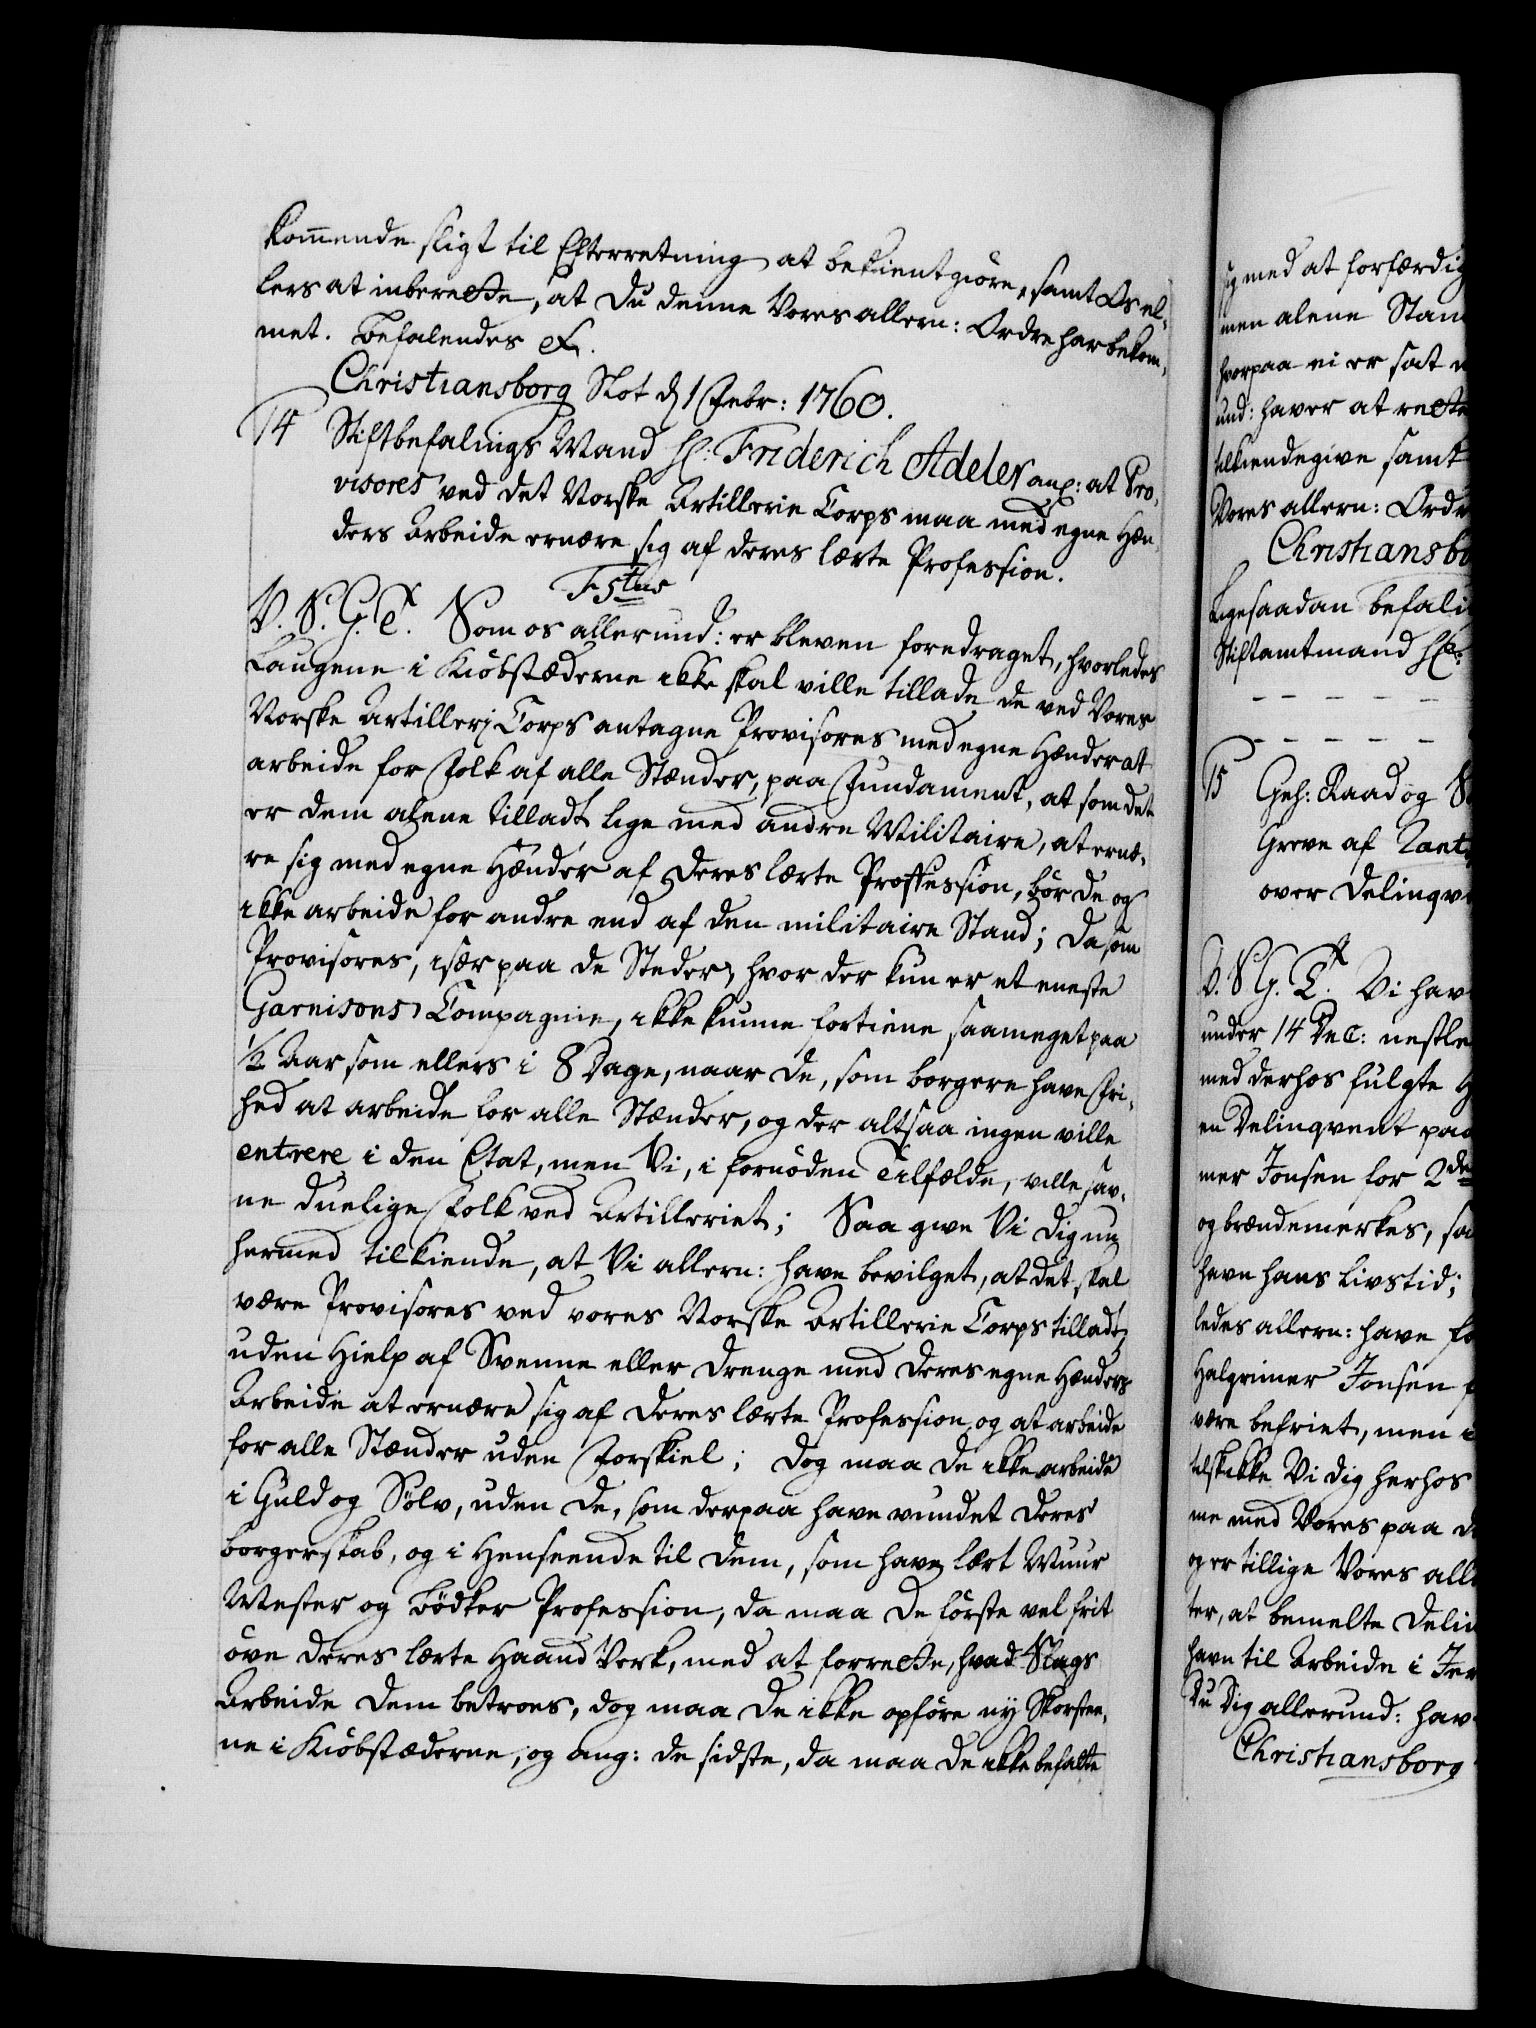 kom̅ende sligt til Efterretning at bekientgiöre, samt Os el-
lers at inberette, at du denne Vores allern: Ordre har bekom-
met. Befalendes &.
Christiansborg Slot d 1 Febr: 1760.
14 Stiftbefalings Mand H: Friderich Adeler ang: at Pro-
visores ved det Norske Artillerie Corps maa med egne Hæn-
ders Arbeide ernære sig af deres lærte Profession.
F 5tus
V. S. G. T. Som os allerund: er bleven foredraget, hvorledes
Laugene i Kiöbstæderne ikke skal ville tillade de ved Vores
Norske Artilleri Corps antagne Provisores med egne Hænder at
arbeide for Folk af alle Stænder, paa Fundament, at som det
er dem alene tilladt lige med andre Militaire, at ernæ-
re sig med egne Hænder af deres lærte Proffession, bör de og
ikke arbeide for andre end af den militaire Stand; da som
Provisores, især paa de Steder, hvor der kun er et eneste
Garnisons Compagnie, ikke kunne fortiene saameget paa
½ Aar som ellers i 8 Dage, naar de, som borgere have Fri-
hed at arbeide for alle Stænder, og der altsaa ingen ville
entrere i den Etat, men Vi, i fornöden Tilfælde, ville sav-
ne duelige Folk ved Artilleriet; Saa give Vi dig nu
hermed tilkiende, at Vi allern: have bevilget, at det skal
være Provisores ved vores Norske Artillerie Corps tilladt
uden Hielp af Svenne eller Drenge med deres egne Hænders
Arbeide at ernære sig af deres lærte Profession og at arbeide
for alle Stænder uden Forskiel; dog maa de ikke arbeide
i Guld og Sölv, uden de, som derpaa have vundet deres
borgerskab, og i Henseende til dem, som have lært Muur
Mester og Bödker Profession, da maa de förste vel frit
öve deres lærte Haand Verk, med at forrette, hvad Slags
Arbeide dem betroes, dog maa de ikke opföre ny Skorstee-
ne i Kiöbstæderne, og ang: de sidste, da maa de ikke befatte
sig med at forfærdig
men alene Stam
hvorpaa vi er sat
und: haver at rette
tilkiendegive samt
Vores allern: Ordr
Christiansbo
Ligesaadan befali
Stiftamtmand H:
15 Geh: Raad og S
Greve af Rant
over Delinqve
V. S. G. T. Vi hav
under 14 Dec: nestle
med derhos fulgte H
en Delinqvent paa
mer Jonsen for 2de
og brændemerkes, sa
have hans Livstid;
ledes allern: have fo
Halgrimer Jonsen f
være befriet, men i
tilskikke Vi dig herhos
me med Vores paa d
og er tillige Vores all
ter, at bemelte Delin
havn til Arbeide i Jer
Du Dig allerund: hav
Christiansborg